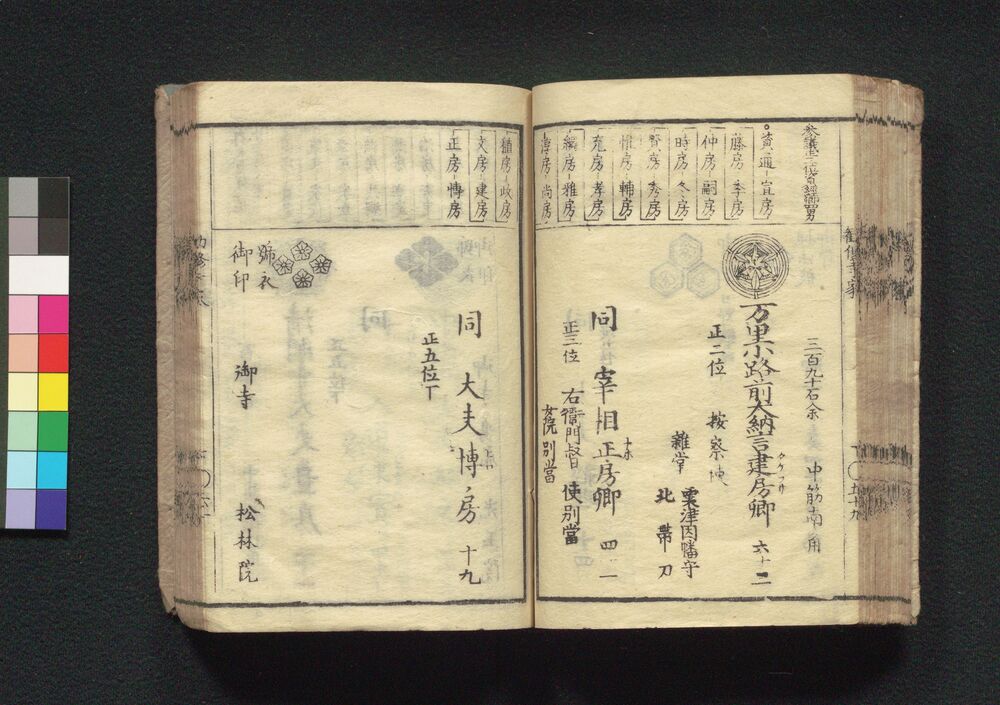 参議
資通―宣房
藤房―季房
仲房―嗣房
時房―冬房
賢房―秀房
惟房―輔房
充房―孝房
綱房―雅房
淳房―尚房
稙房―政房
文房―建房
正房―博房
三百九十石余　中筋南角
万里小路前大納言建房卿　六十二
正二位　按察使
雑掌
粟津因幡守
北帯刀
同　宰相正房卿　四一
正三位　右衛門督　使別當
女院別當
同　大夫博房　十九
正五位下
號衣
御印
御寺　松林院
五十九